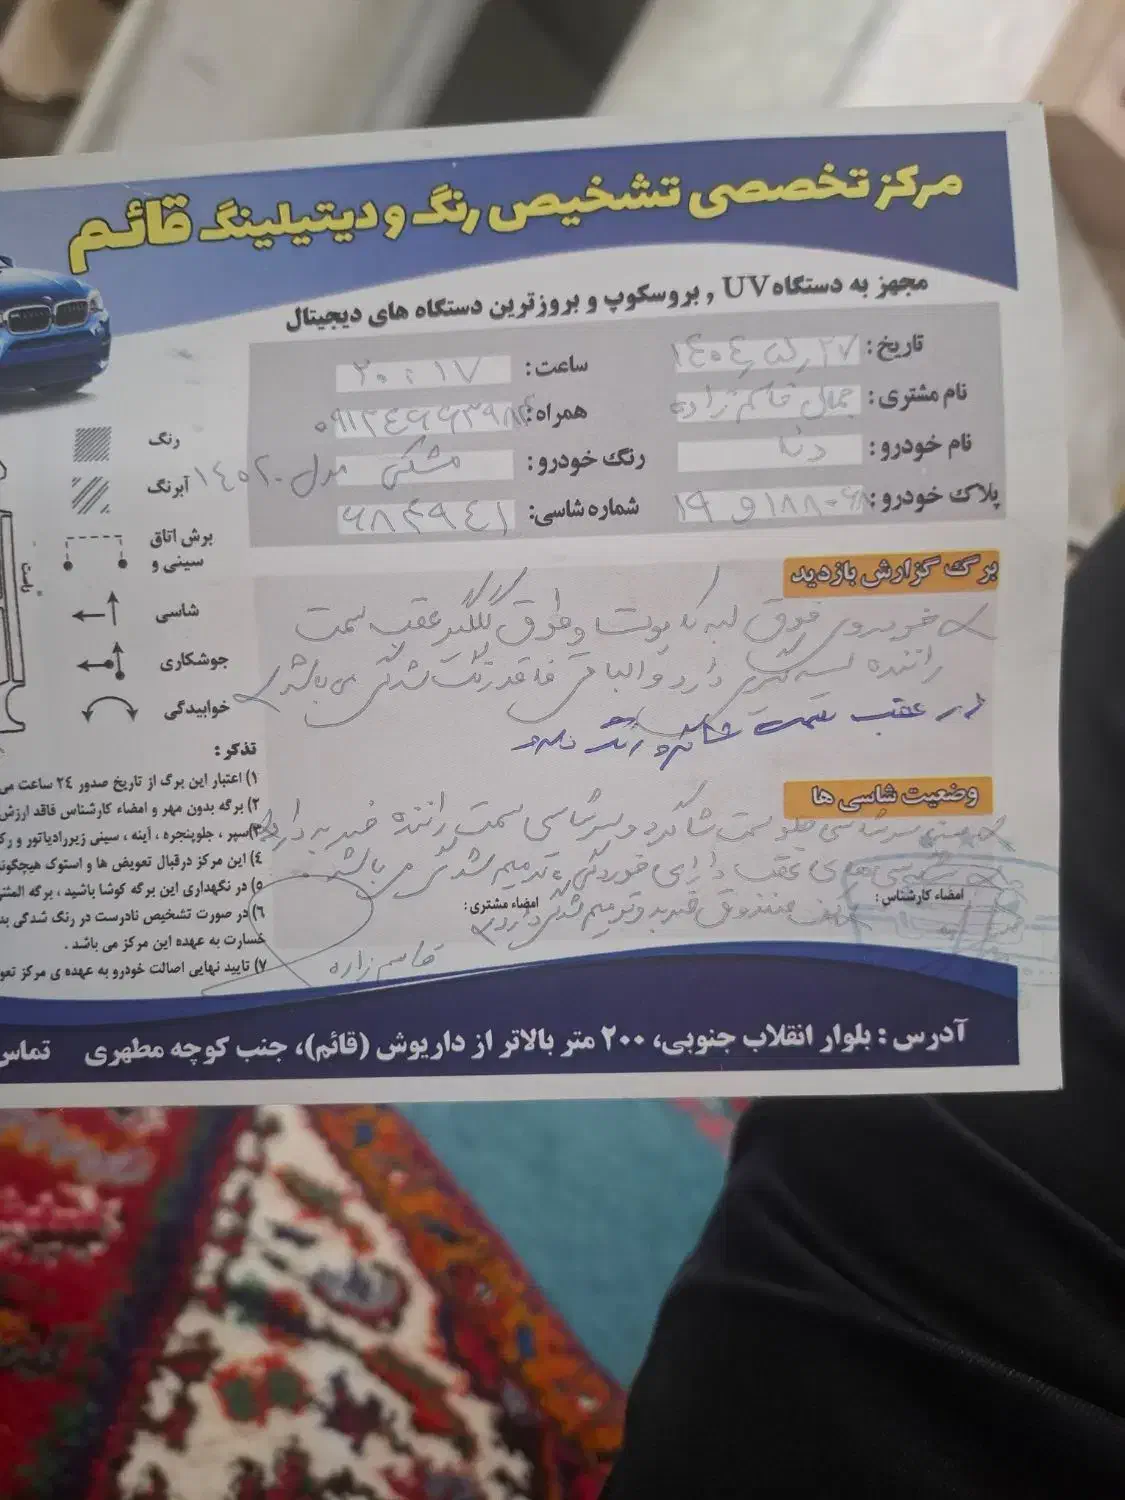 مرکز تخصصی تشخیص رنگ و دیتیلینگ قائم
مجهز به دستگاه UV , بروسکوپ و بروزترین دستگاه های دیجیتال
تاریخ: ۲۷ ۱۴۰۴
ساعت: ۲۰:۱۷
نام مشتری: جمال قاسم زاده
همراه:
نام خودرو: دنا
رنگ خودرو: مشکی مدل ۱۴۰۲
پلاک خودرو:
شماره شاسی: ۶۸۴۹۴۱
رنگ
آبرنگ
برش اتاق
سینی و
شاسی
جوشکاری
خوابیدگی
راست
برگ گزارش بازدید
خودروی فوق لبه کاپوت و طوق گلگیر عقب سمت
راننده لیسه گیری دارد و الباقی فاقد رنگ شدگی می باشد
در عقب سمت شاگرد رنگ دارد
وضعیت شاسی ها
سر شاسی جلو سمت شاگرد و سر شاسی سمت راننده ضربه دارد
های عقب دارای خوردگی و ترمیم شدگی می باشد
کف صندوق ضربه و ترمیم شدگی دارد
امضاء کارشناس:
امضاء مشتری:
قاسم زاده
تذکر:
۱) اعتبار این برگ از تاریخ صدور ۲٤ ساعت می
۲) برگه بدون مهر و امضاء کارشناس فاقد ارزش
۳) سپر ، جلوپنجره ، آینه ، سینی زیررادیاتور و
٤) این مرکز درقبال تعویض ها و استوک هیچگونه
۵) در نگهداری این برگه کوشا باشید ، برگه المثنی
۶) در صورت تشخیص نادرست در رنگ شدگی
خسارت به عهده این مرکز می باشد .
۷) تایید نهایی اصالت خودرو به عهده ی مرکز
آدرس : بلوار انقلاب جنوبی، ۲۰۰ متر بالاتر از داریوش (قائم)، جنب کوچه مطهری تماس